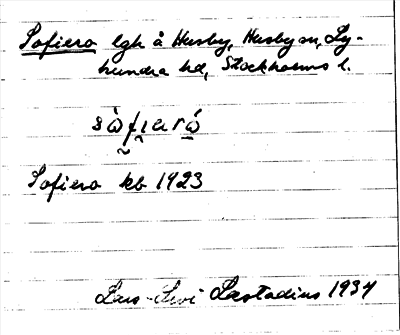 Sofiero lgh å Husby, Husby sn, Ly-
hundra hd, Stockholms l.
Sofiero kb 1923
Lars-Levi Læstadius 1934